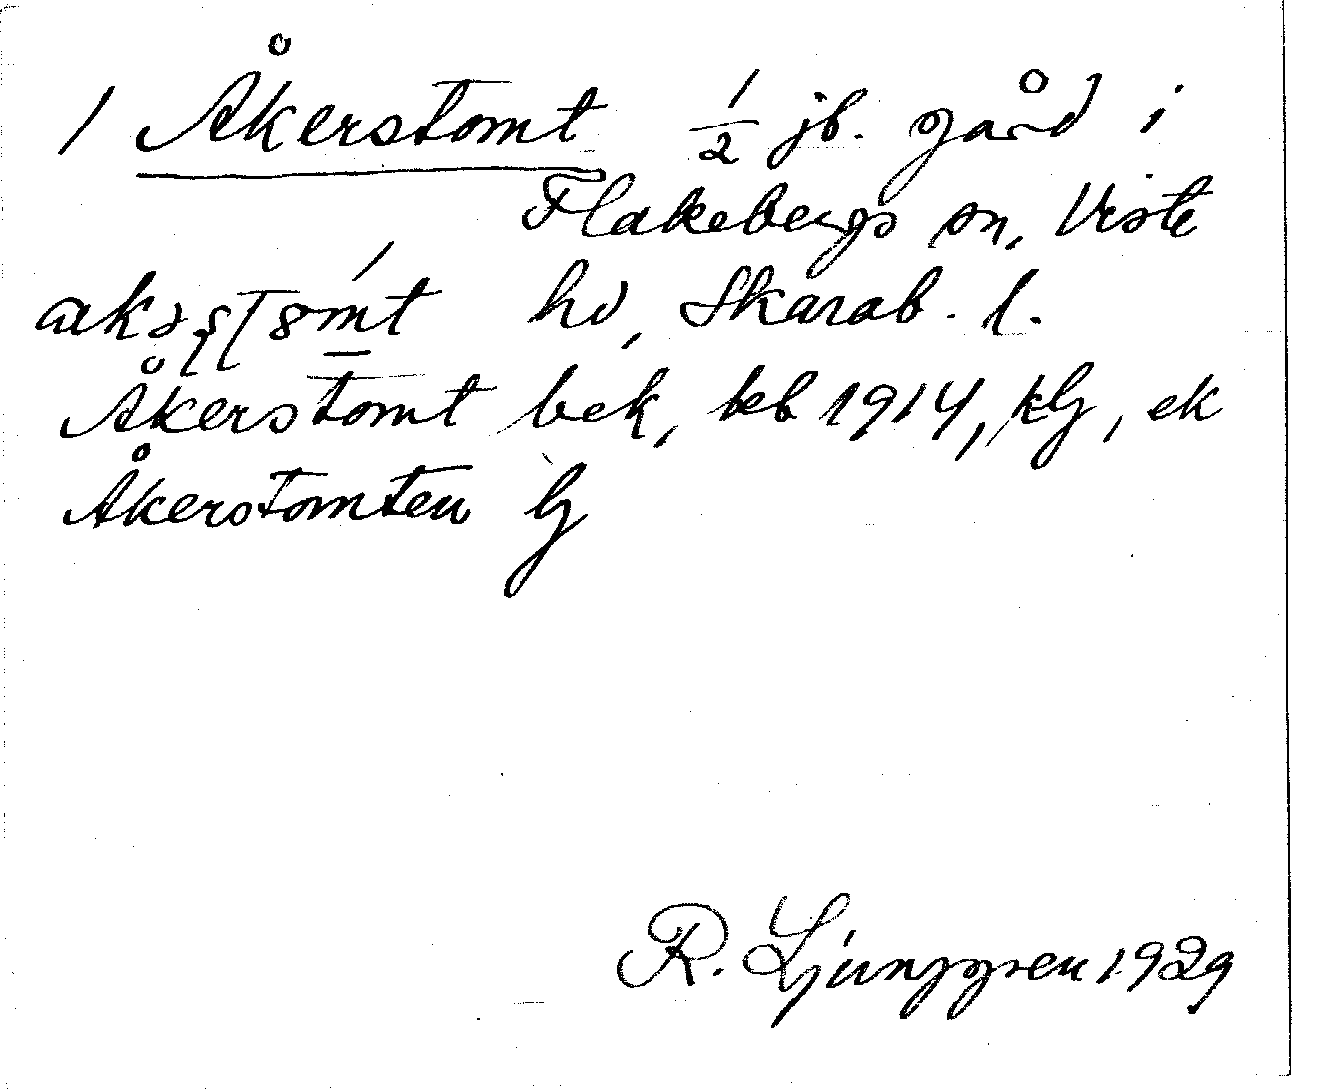 1 Åkerstomt 1/2 jb. gård i
Flakebergs sn, Viste
hd, Skarab. l.
Åkerstomt bek, kb 1914, klj, ek
Åkerstomten lj
R. Ljunggren 1929